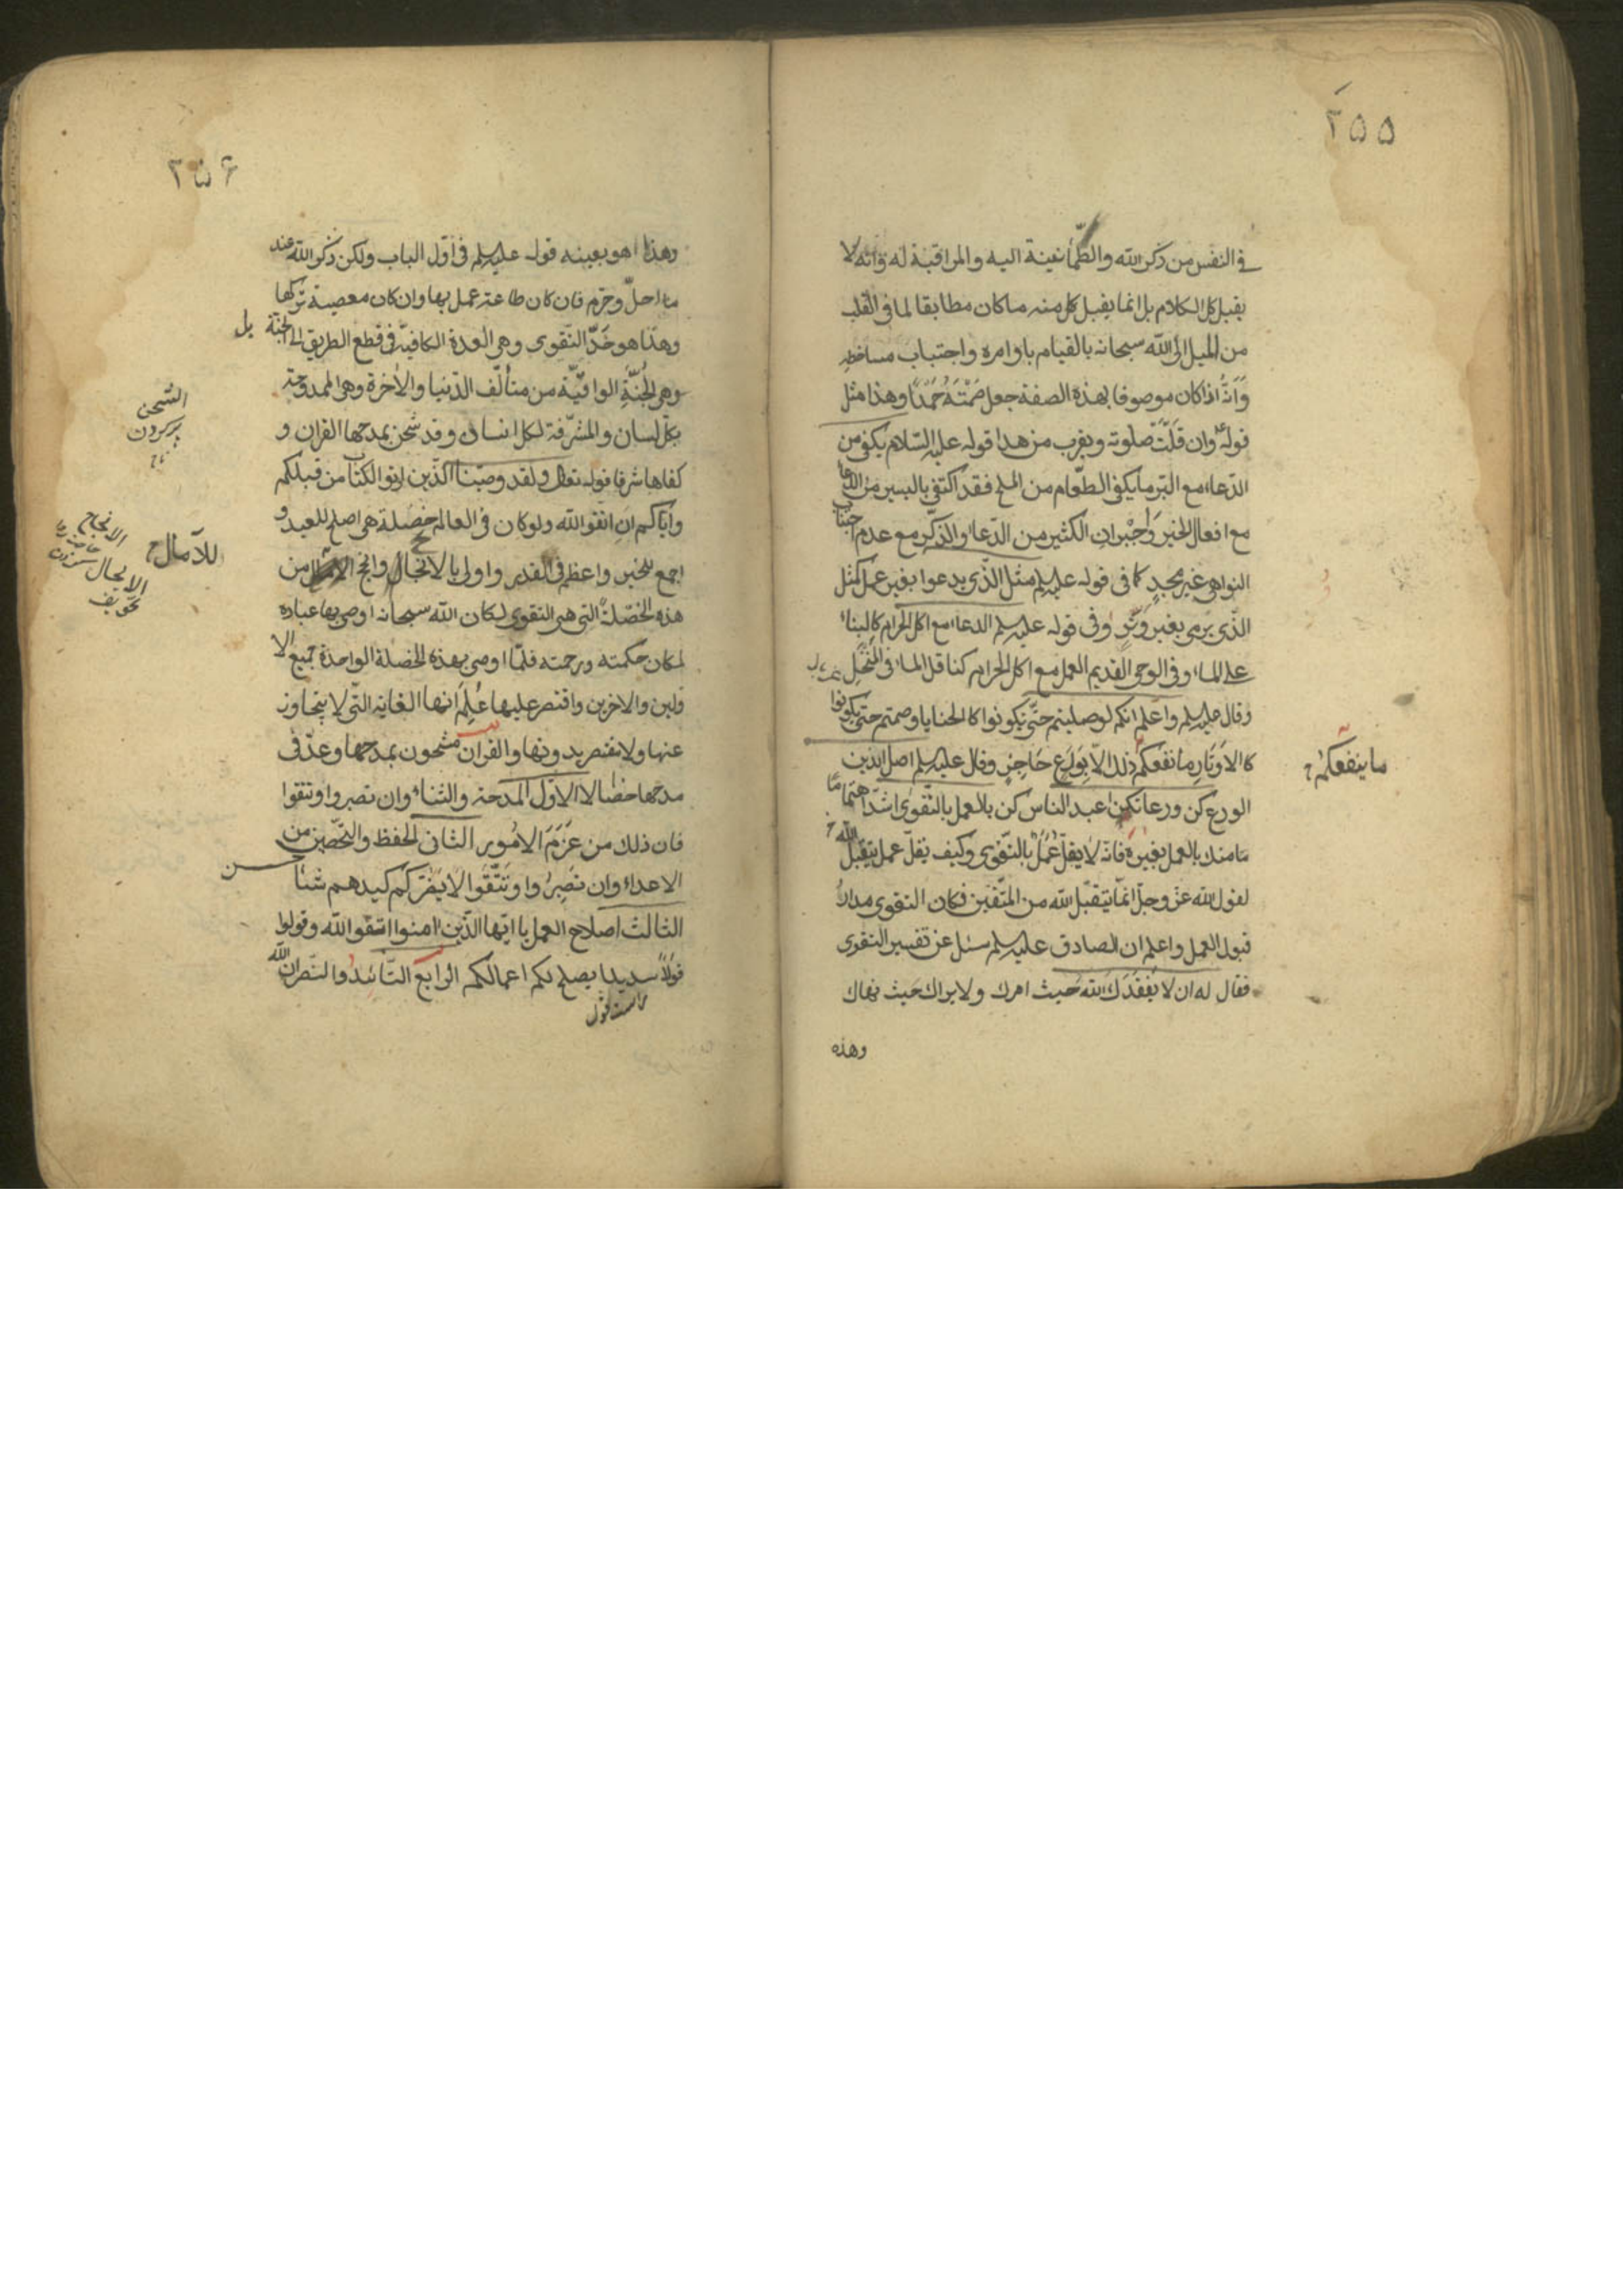 ٢٥٥
في النفس من ذكر الله والطّمأنينة اليه والمراقبة له وانّه لا
يقبل كل الكلام بل انما يقبل كل منه ما كان مطابقا لما فى القلب
من الميل الى الله سبحانه بالقيام باوامره واجتناب مساخطه
وَانّهُ اذا كان موصوفا بهذه الصفة جعل صَمْتَهُ حَمْدًا وهذا مثل
قوله وان قلّت صلوته ويقرب من هذا قوله عليه السّلام يكفى من
الدّعاء مع البّر ما يكفى الطّعام من الملح فقد اكتفى باليسير من الدعا
مع افعال الخير وَاخْبر ان الكثير من الدّعا والذكر مع عدم اجتناب
النواهى غير مجدٍ كما فى قوله عليه السلم مثل الّذى يدعوا بغير عمل كمثل
الّذى يرمى بغير وَتَرٍ وفى قوله عليه السلم الدعاء مع اكل الحرام كالبناء
على الماء وفى الوحى القديم العمل مع اكل الحرام كناقل الماء فى المُنْخُلِ
وقال عليه السلم واعلم انكم لو صليتم حتّى تكونوا كالحنايا وصمتم حتى تكونوا
كالاَوتَارِ ما نفعكم ذلك الاّ بِوَرَعٍ حَاجِزٍ وقال عليه السلم اصل الدّين
الورع كن ورعا تكن اعبد الناس كن بالعمل بالتّقوى اشدّ اهتماما
منك بالعمل بغيره فانّه لا يقلّ عَمَلٌ بالتّقوى وكيف يقلّ عمل يتقبّل
لقول الله عزّ وجلّ انمّا يتقبّل الله من المتّقين فكان التقوى مدار
قبول العمل واعلم ان الصادق عليه السلم سئل عن تفسير التقوى
فقال له ان لا يَفْقِدَكَ الله حَيث امرك ولا يراك حَيث نهاك
وهذه
ما ينفعكم
٢٥٦
وهذا هو بعينه قوله عليه السلم فى اوّل الباب ولكن ذكر الله عند
ما احلّ وحّرم فان كان طاعة عمل بها وان كان معصية تركها
وهذا هو حَدّ التّقوى وهى العدة الكافية فى قطع الطريق الى الجنّة بل
وهى الجُنّةُ الواقيّة من متألّف الدّنيا والاخرة وهى الممدوحة
بكل لسان والمشرّفة لكل انسان وقد شحن بمدحها القران و
كفاها شرفا قوله تعالى ولقد وصّينا الّذين اوتوا الكتاب من قبلكم
وايّاكم ان اتّقوا الله ولو كان فى العالم خصلة هى اصلح للعبد و
اجمع للخير واعظم فى القدر واولى بالانجال وانجح من
هذه الخصلة التى هى التقوى لكان الله سبحانه اوصى بها عباده
لمكان حكمته ورحمته فلّما اوصى بهذه الخصلة الواحدة جميع الا
ولين والاخرين واقتصر عليها عُلِمَ انها الغاية التّى لا يتجاوز
عنها ولا يقتصر بدونها والقران مشحون بمدحها وعدّ فى
مدحها خصالا الاوّل المدحة والثناء وان تصبروا وتتقوا
فان ذلك من عَزمَ الاُمُور الثانى الحفظ والتحّصين من
الاعداء وان تَصبِرُوا وَتَتَّقُوا لا يَضُرّكم كيدهم شيئا
الثالث اصلاح العمل يا ايّها الّذين امنوا اتّقوا الله وقولوا
قولاً سديدا يصلح لكم اعمالكم الرّابع التّائيد والنّصر انّ الله
للآمال
الشحن
پر كردن
الانجاح
تخويف